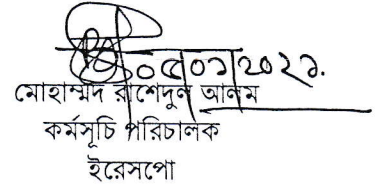 ০৫/০১/২০২১.
মোহাম্মদ রাশেদুল আলম
কর্মসূচি পরিচালক
ইরেসপো